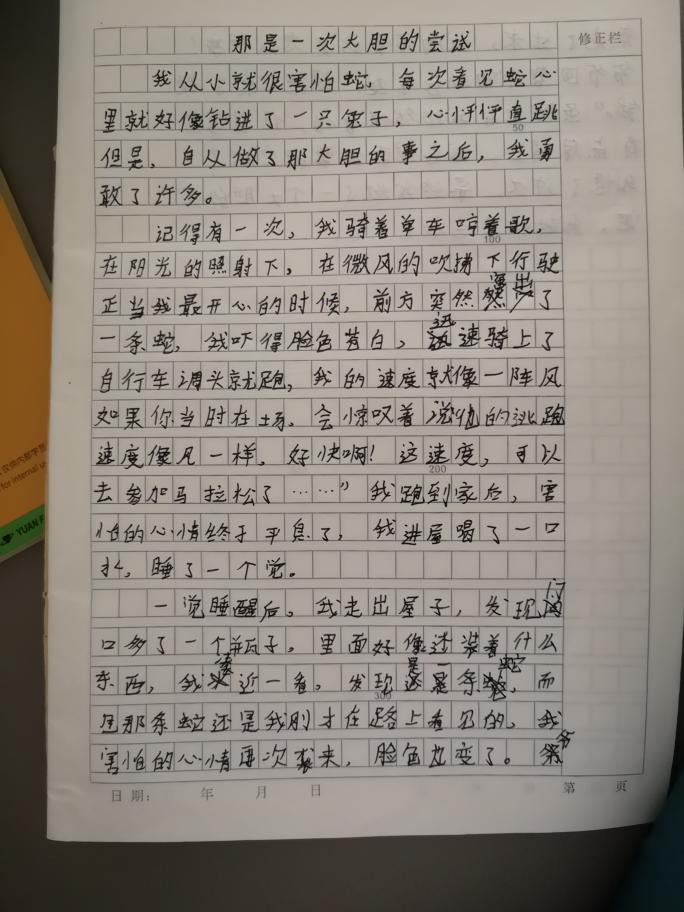 那是一次大胆的尝试
修正栏
我从小就很害怕蛇，每次看见蛇心
里就好像钻进了一只兔子，心怦怦直跳
50
但是，自从做了那大胆的事之后，我勇
敢了许多。
记得有一次，我骑着单车哼着歌，
100
在阳光的照射下，在微风的吹拂下行驶
正当我最开心的时候，前方突然窜出了
一条蛇，我吓得脸色苍白，迅速骑上了
自行车调头就跑，我的速度就像一阵风
如果你当时在场，会惊叹着说他的逃跑
速度像风一样，好快啊！这速度，可以
200
去参加马拉松了……”我跑到家后，害
怕的心情终于平息了，我进屋喝了一口
水，睡了一个觉。
一觉睡醒后。我走出屋子，发现门
口多了一个瓶子。里面好像还装着什么
东西，我凑近一看。发现是一条蛇，而
300
且那条蛇还是我刚才在路上看见的，我
害怕的心情再次袭来，脸色也变了。爷
日期： 年 月 日 第 页
YUAN
for internal us